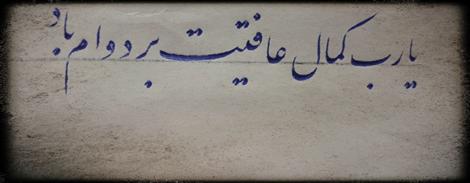 یا رب کمال عافیتت بر دوام باد